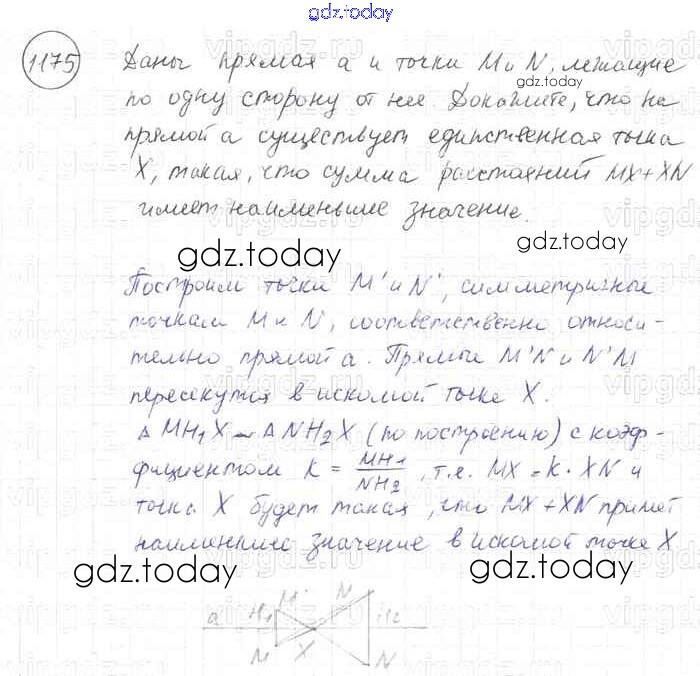 gdz.today
1175 Даны прямая a и точки M и N, лежащие
gdz.today
по одну сторону от нее. Докажите, что на
прямой a существует единственная точка
X, такая, что сумма расстояний MX+XN
имеет наименьшие значение.
gdz.today
gdz.today
Построим точки M' и N', симметричные
точкам M и N, соответственно относи-
тельно прямой a. Прямые M'N и N'M
пересекутся в искомой точке X.
△ MH₁X ~ △ NH₂X (по построению) с коэф-
фициентом K = MH₁/NH₂, т.е. MX = K · XN и
точка X будет такая, что MX + XN примет
наименьшие значение в искомой точке X
gdz.today
gdz.today
M' N
a H₁ H₂
M X N